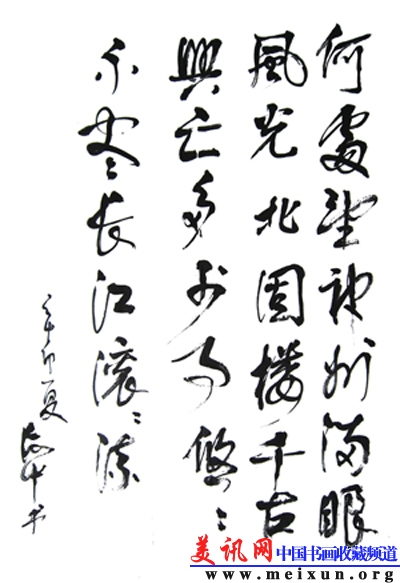 何處望神州滿眼
風光北固楼千古
興亡多少事悠々
不尽長江滚々流
辛卯夏
书
美讯网 中国书画收藏频道
www.meixun.org